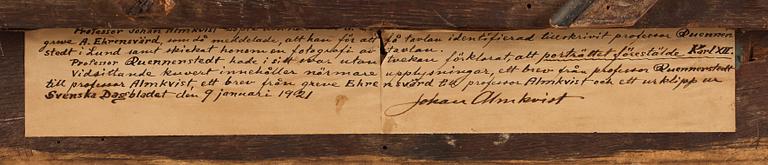 Professor Johan Almkvist
greve A. Ehrensvärd, som då meddelade, att han för att få tavlan identifierad tillskrivit professor Quennen-
stedt i Lund samt skickat honom en fotografi av tavlan.
Professor Quennenstedt hade i sitt svar utan tvekan förklarat, att porträttet föreställde Karl XII.
Vidsittande kuvert innehåller närmare upplysningar, ett brev från professor Quennenstedt
till professor Almkvist, ett brev från greve Ehrensvärd till professor Almkvist och ett urklipp ur
Svenska Dagbladet den 9 januari 1921
Johan Almkvist